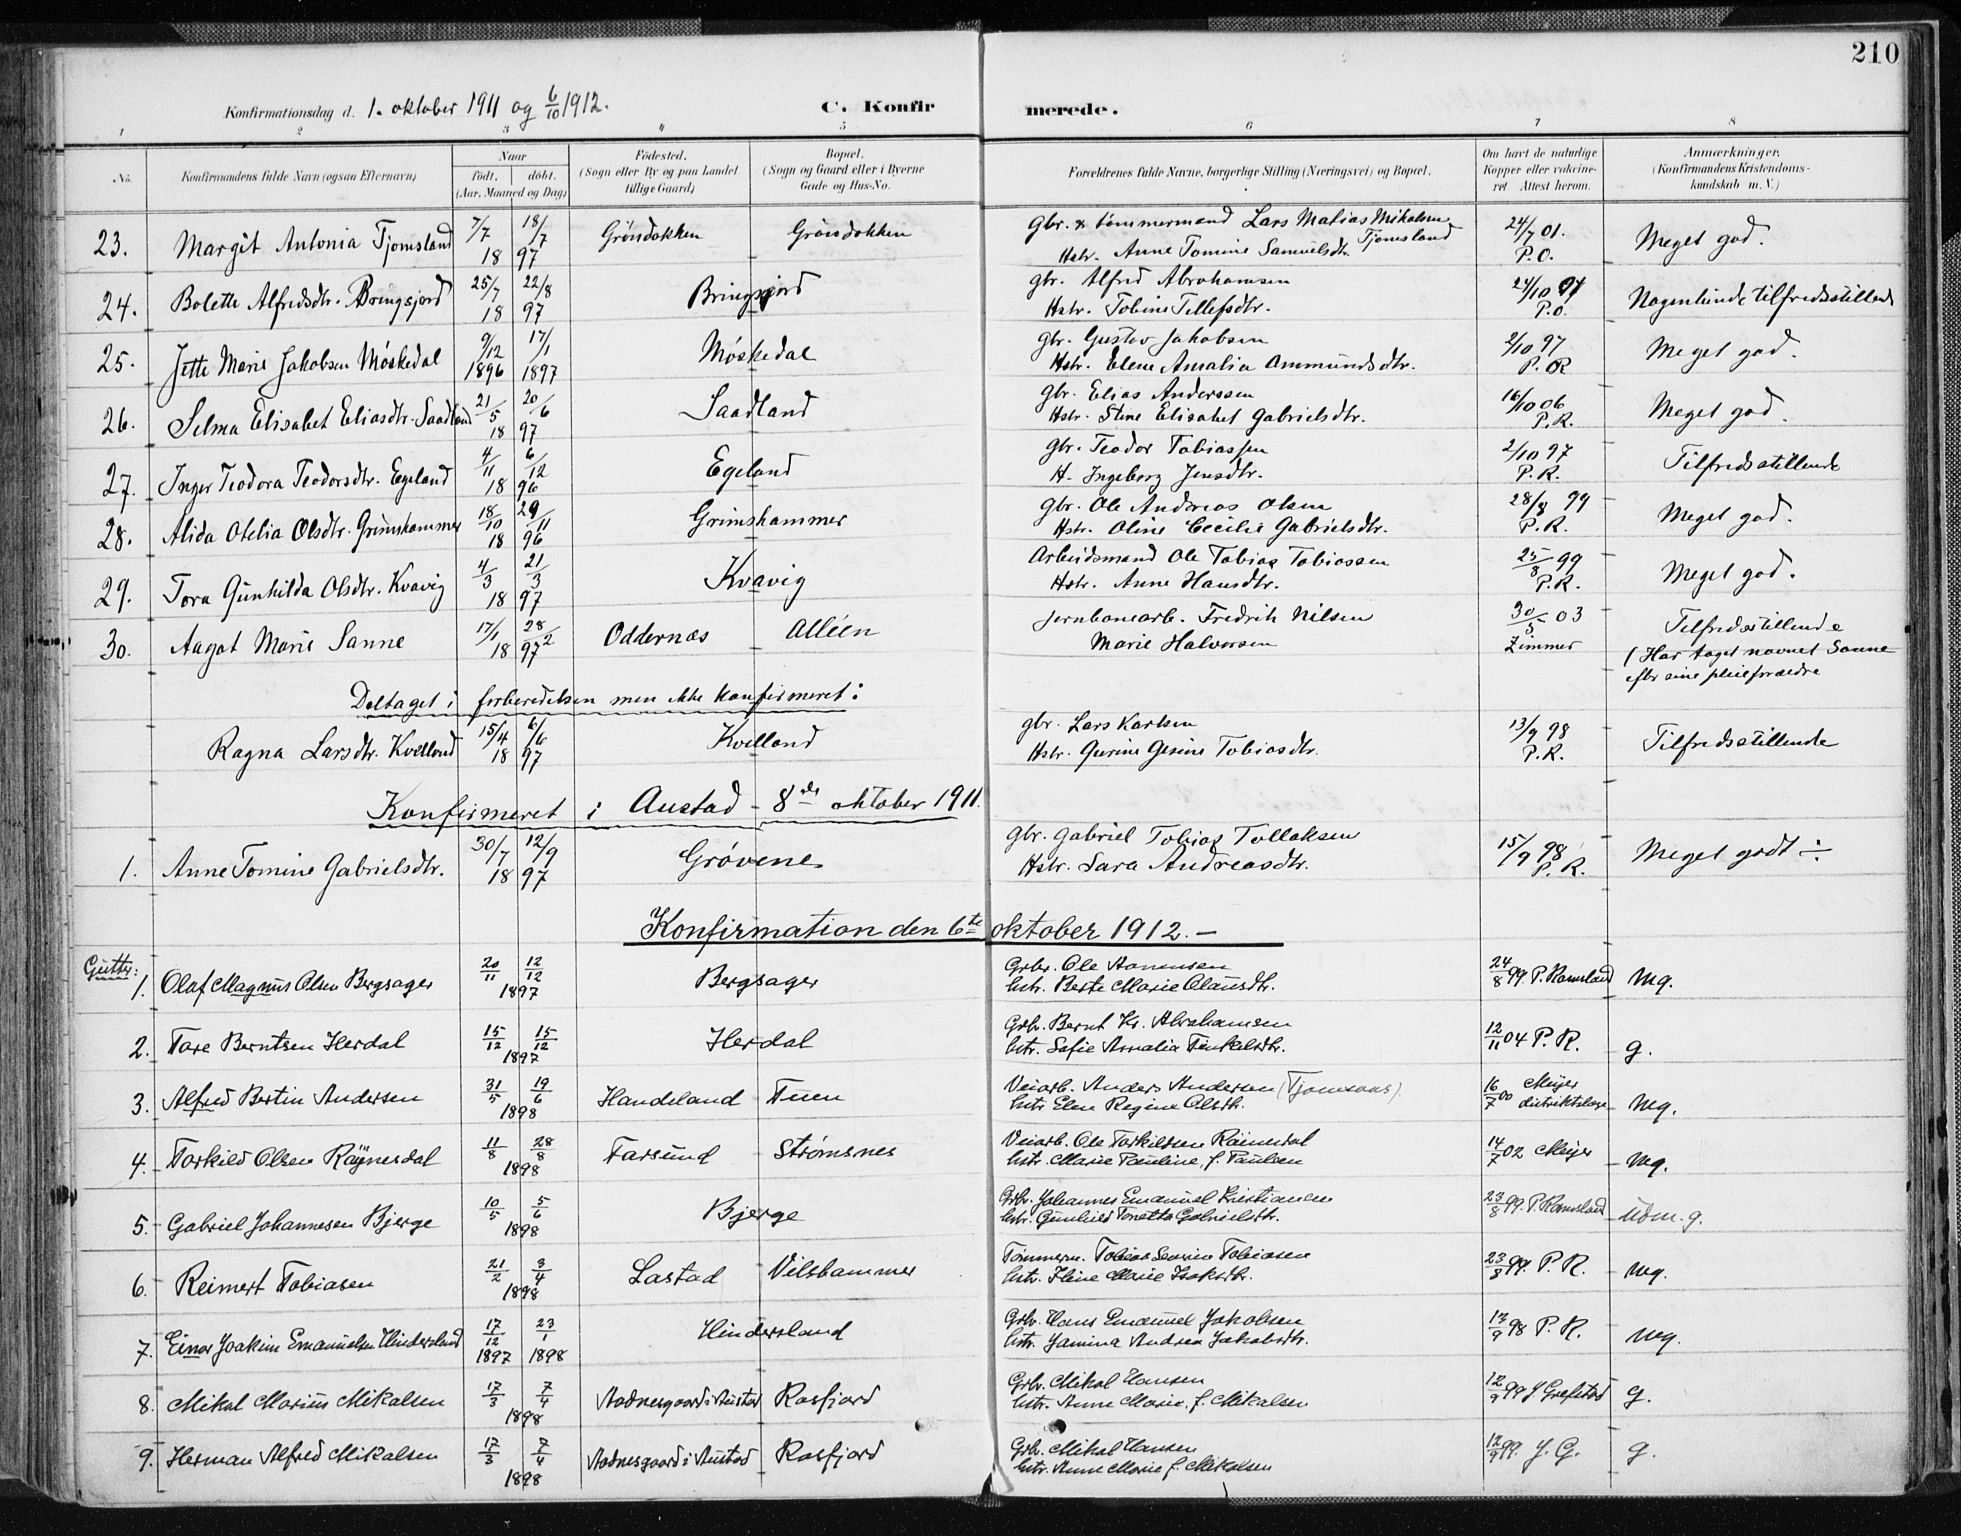 210
Konfirmationsdag d. 1. oktober 1911 og 6/10 1912.
C. Konfirmerede.
1 2 3 4 5 6 7 8
No.
Konfirmandens fulde Navn (ogsaa Efternavn)
Naar
födt. döbt.
(Aar, Maaned og Dag)
Födested.
(Sogn eller By og paa Landet tillige Gaard)
Bopæl.
(Sogn og Gaard eller i Byerne Gade og Hus-No.
Forældrenes fulde Navne, borgerlige Stilling (Næringsvei) og Bopæl.
Om havt de naturlige Kopper eller vakcineret. Attest herom.
Anmærkninger.
(Konfirmandens Kristendomskundskab m. V.)
23. Margit Antonia Tjomsland 7/7 18/7 1897 Gröndokken Gröndokken Gbr. & tømmermand Lars Matias Mikalsen Tjomsland 24/7 01. Meget god.
Hstr. Anne Tomine Samuelsdtr. P.O.
24. Bolette Alfredsdtr. Bringsjord 25/7 22/8 1897 Bringsjord gbr. Alfred Abrahamsen 24/10 97 Nogenlunde tilfredsstillende
Hstr. Tobine Tellefsdtr. P.O.
25. Jette Marie Jakobsen Möskedal 9/12 1896 17/1 1897 Möskedal gbr. Gustav Jakobsen 2/10 97 Meget god.
Hstr. Elene Amalia Ammundsdtr. P.R
26. Selma Elisabet Eliasdtr. Saadland 21/5 20/6 1897 Saadland gbr. Elias Anderssen 16/10 06 Meget god.
Hstr. Stine Elisabet Gabrielsdtr. P.R.
27. Inger Teodora Teodorsdtr. Egeland 4/11 6/12 1896 Egeland gbr. Teodor Tobiassen 2/10 97 Tilfredsstillende
H. Ingeborg Jensdtr. P.R.
28. Alida Otelia Olsdtr. Grimshammer 18/10 29/11 1896 Grimshammer gbr. Ole Andreas Olsen 28/8 99 Meget god.
Hstr. Oline Cecilie Gabrielsdtr. P.R.
29. Tora Gunhilda Olsdtr. Kvavig 4/3 21/3 1897 Kvavig Arbeidsmand Ole Tobias Tobiassen 25/8 99 Meget god.
Hstr. Anne Hansdtr. P.R.
30. Aagot Marie Sanne 17/1 28/2 1897 Oddernæs Alléen Jernbanearb. Fredrik Nilsen 30/5 03 Tilfredsstillende
Marie Halvorsen Zimmer (Har taget navnet Sanne
efter sine pleieforældre
Deltaget i forberedelsen men ikke konfirmeret:
Ragna Larsdtr. Kvelland 15/4 6/6 1897 Kvelland gbr. Lars Karlsen 13/9 98 Tilfredsstillende
Hstr. Gurine Gesine Tobiasdtr. P.R.
Konfirmeret i Austad - 8de oktober 1911.
1. Anne Tomine Gabrielsdtr. 30/7 12/9 1897 Grövene gbr. Gabriel Tobias Tollaksen 15/9 98 Meget godt ÷
Hstr. Sara Andreasdtr. P.R.
Konfirmation den 6te oktober 1912. -
Gutter:
1. Olaf Magnus Olsen Bergsager 20/11 12/12 1897 Bergsager Grbr. Ole Aanensen 24/8 99. P. Ramsland Mg.
hstr. Berte Marie Olausdtr.
2. Tore Berntsen Herdal 15/12 15/12 1897 Herdal Grbr. Bernt Kr. Abrahamsen 12/11 04 P. R. g.
hstr. Sofie Amalia Tinkelsdtr.
3. Alfred Bertin Andersen 31/5 19/6 1898 Handeland Tuen Veiarb. Anders Andersen 16/7 00 Meijer Mg.
hstr Elen Regine Olsdtr. distriktslæge
4. Torkild Olsen Röynesdal 11/8 28/8 1898 Farsund Strømsnes Veiarb. Ole Torkildsen Röinesdal 14/7 02 Meijer Mg.
hstr. Marie Pauline, f. Paulsen
5. Gabriel Johannesen Bjerge 10/5 5/6 1898 Bjerge Grbr. Johannes Emanuel Kristiansen 23/8 99. P. Ramsland Udm. g.
hstr. Gunhild Tonetta Gabrielsdtr.
6. Reimert Tobiasen 21/2 3/4 1898 Lastad Vilshammer Tømmerm. Tobias Severin Tobiasen 23/8 99. P. R. Mg.
hstr. Marie Isaksdtr.
7. Einar Joakim Emanuelsen Hindersland 17/12 1897 23/1 1898 Hindersland Grbr. Hans Emanuel Jakobsen 13/9 98 P. R. Mg.
hstr. Jamina Andrea Jakobsdtr.
8. Mikal Marius Mikalsen 17/3 7/4 1898 Aadnesgaard i Austad Rosfjord Grbr. Mikal Hansen 12/9 99 J Grefstad g.
hstr. Anne Marie, f. Mikalsen
9. Herman Alfred Mikalsen 17/3 7/4 1898 Aadnesgaard i Austad Rosfjord Grbr. Mikal Hansen 12/9 99. J. G. g.
hstr. Anne Marie f. Mikalsen